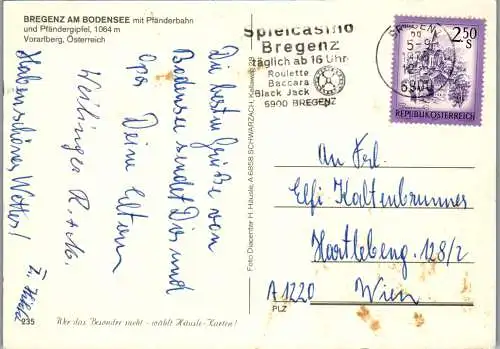 BREGENZ AM BODENSEE mit Pfänderbahn
und Pfändergipfel, 1064 m
Vorarlberg, Österreich
Die besten Grüße vom
Bodensee sendet Dir und
Opa Deine Eltern
Weilinger R. + M.
Haben schönes Wetter!
235
Wer das Besondere sucht - wählt Häusle-Karten!
Foto Diacenter H. Häusle, A 6858 SCHWARZACH,
Spielcasino
Bregenz
täglich ab 16 Uhr
Roulette
Baccara
Black Jack
6900 BREGENZ
6900
2.50
S
REPUBLIK ÖSTERREICH
An Frl.
Elfi Kaltenbrunner
Hartlebeng. 128/2
A 1220 Wien
PLZ